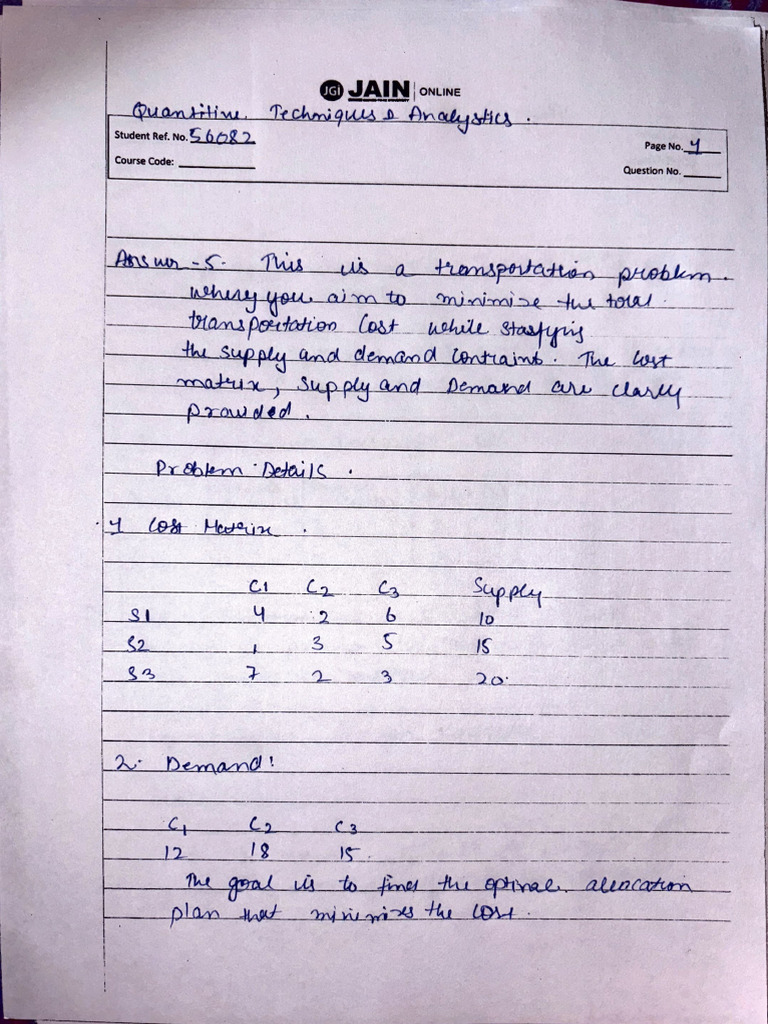 JGI JAIN ONLINE
Quantitive Techniques & Analystics.
Student Ref. No. 56082
Page No. 1
Course Code:
Question No.
Answer-5. This is a transportation problem.
where you aim to minimize the total
transportation cost while stasfying
the supply and demand contraint. The cost
matrix, supply and Demand are clarly
provided.
Problem Details.
1 Cost Matrix.
C1 C2 C3 Supply
S1 4 2 6 10
S2 1 3 5 15
S3 7 2 3 20
2. Demand!
C1 C2 C3
12 18 15
The goal is to find the optimal allocation
plan that minimizes the cost.